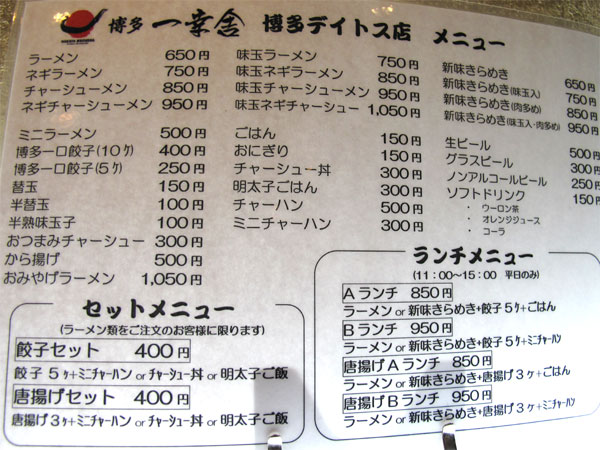 博多 一幸舎 博多デイトス店 メニュー
ラーメン 650円
ネギラーメン 750円
チャーシューメン 850円
ネギチャーシューメン 950円
味玉ラーメン 750円
味玉ネギラーメン 850円
味玉チャーシューメン 950円
味玉ネギチャーシュー 1,050円
新味きらめき 650円
新味きらめき(味玉入) 750円
新味きらめき(肉多め) 850円
新味きらめき(味玉入・肉多め) 950円
ミニラーメン 500円
博多一口餃子(10ケ) 400円
博多一口餃子(5ケ) 250円
替玉 150円
半替玉 100円
半熟味玉子 100円
おつまみチャーシュー 300円
から揚げ 500円
おみやげラーメン 1,050円
ごはん 150円
おにぎり 150円
チャーシュー丼 300円
明太子ごはん 300円
チャーハン 500円
ミニチャーハン 300円
生ビール 500円
グラスビール 300円
ノンアルコールビール 250円
ソフトドリンク 150円
・ウーロン茶
・オレンジジュース
・コーラ
セットメニュー
(ラーメン類をご注文のお客様に限ります)
餃子セット 400円
餃子5ケ+ミニチャーハン or チャーシュー丼 or 明太子ご飯
唐揚げセット 400円
唐揚げ3ケ+ミニチャーハン or チャーシュー丼 or 明太子ご飯
ランチメニュー
(11:00～15:00 平日のみ)
Aランチ 850円
ラーメン or 新味きらめき+餃子5ケ+ごはん
Bランチ 950円
ラーメン or 新味きらめき+餃子5ケ+ミニチャーハン
唐揚げAランチ 850円
ラーメン or 新味きらめき+唐揚げ3ケ+ごはん
唐揚げBランチ 950円
ラーメン or 新味きらめき+唐揚げ3ケ+ミニチャーハン